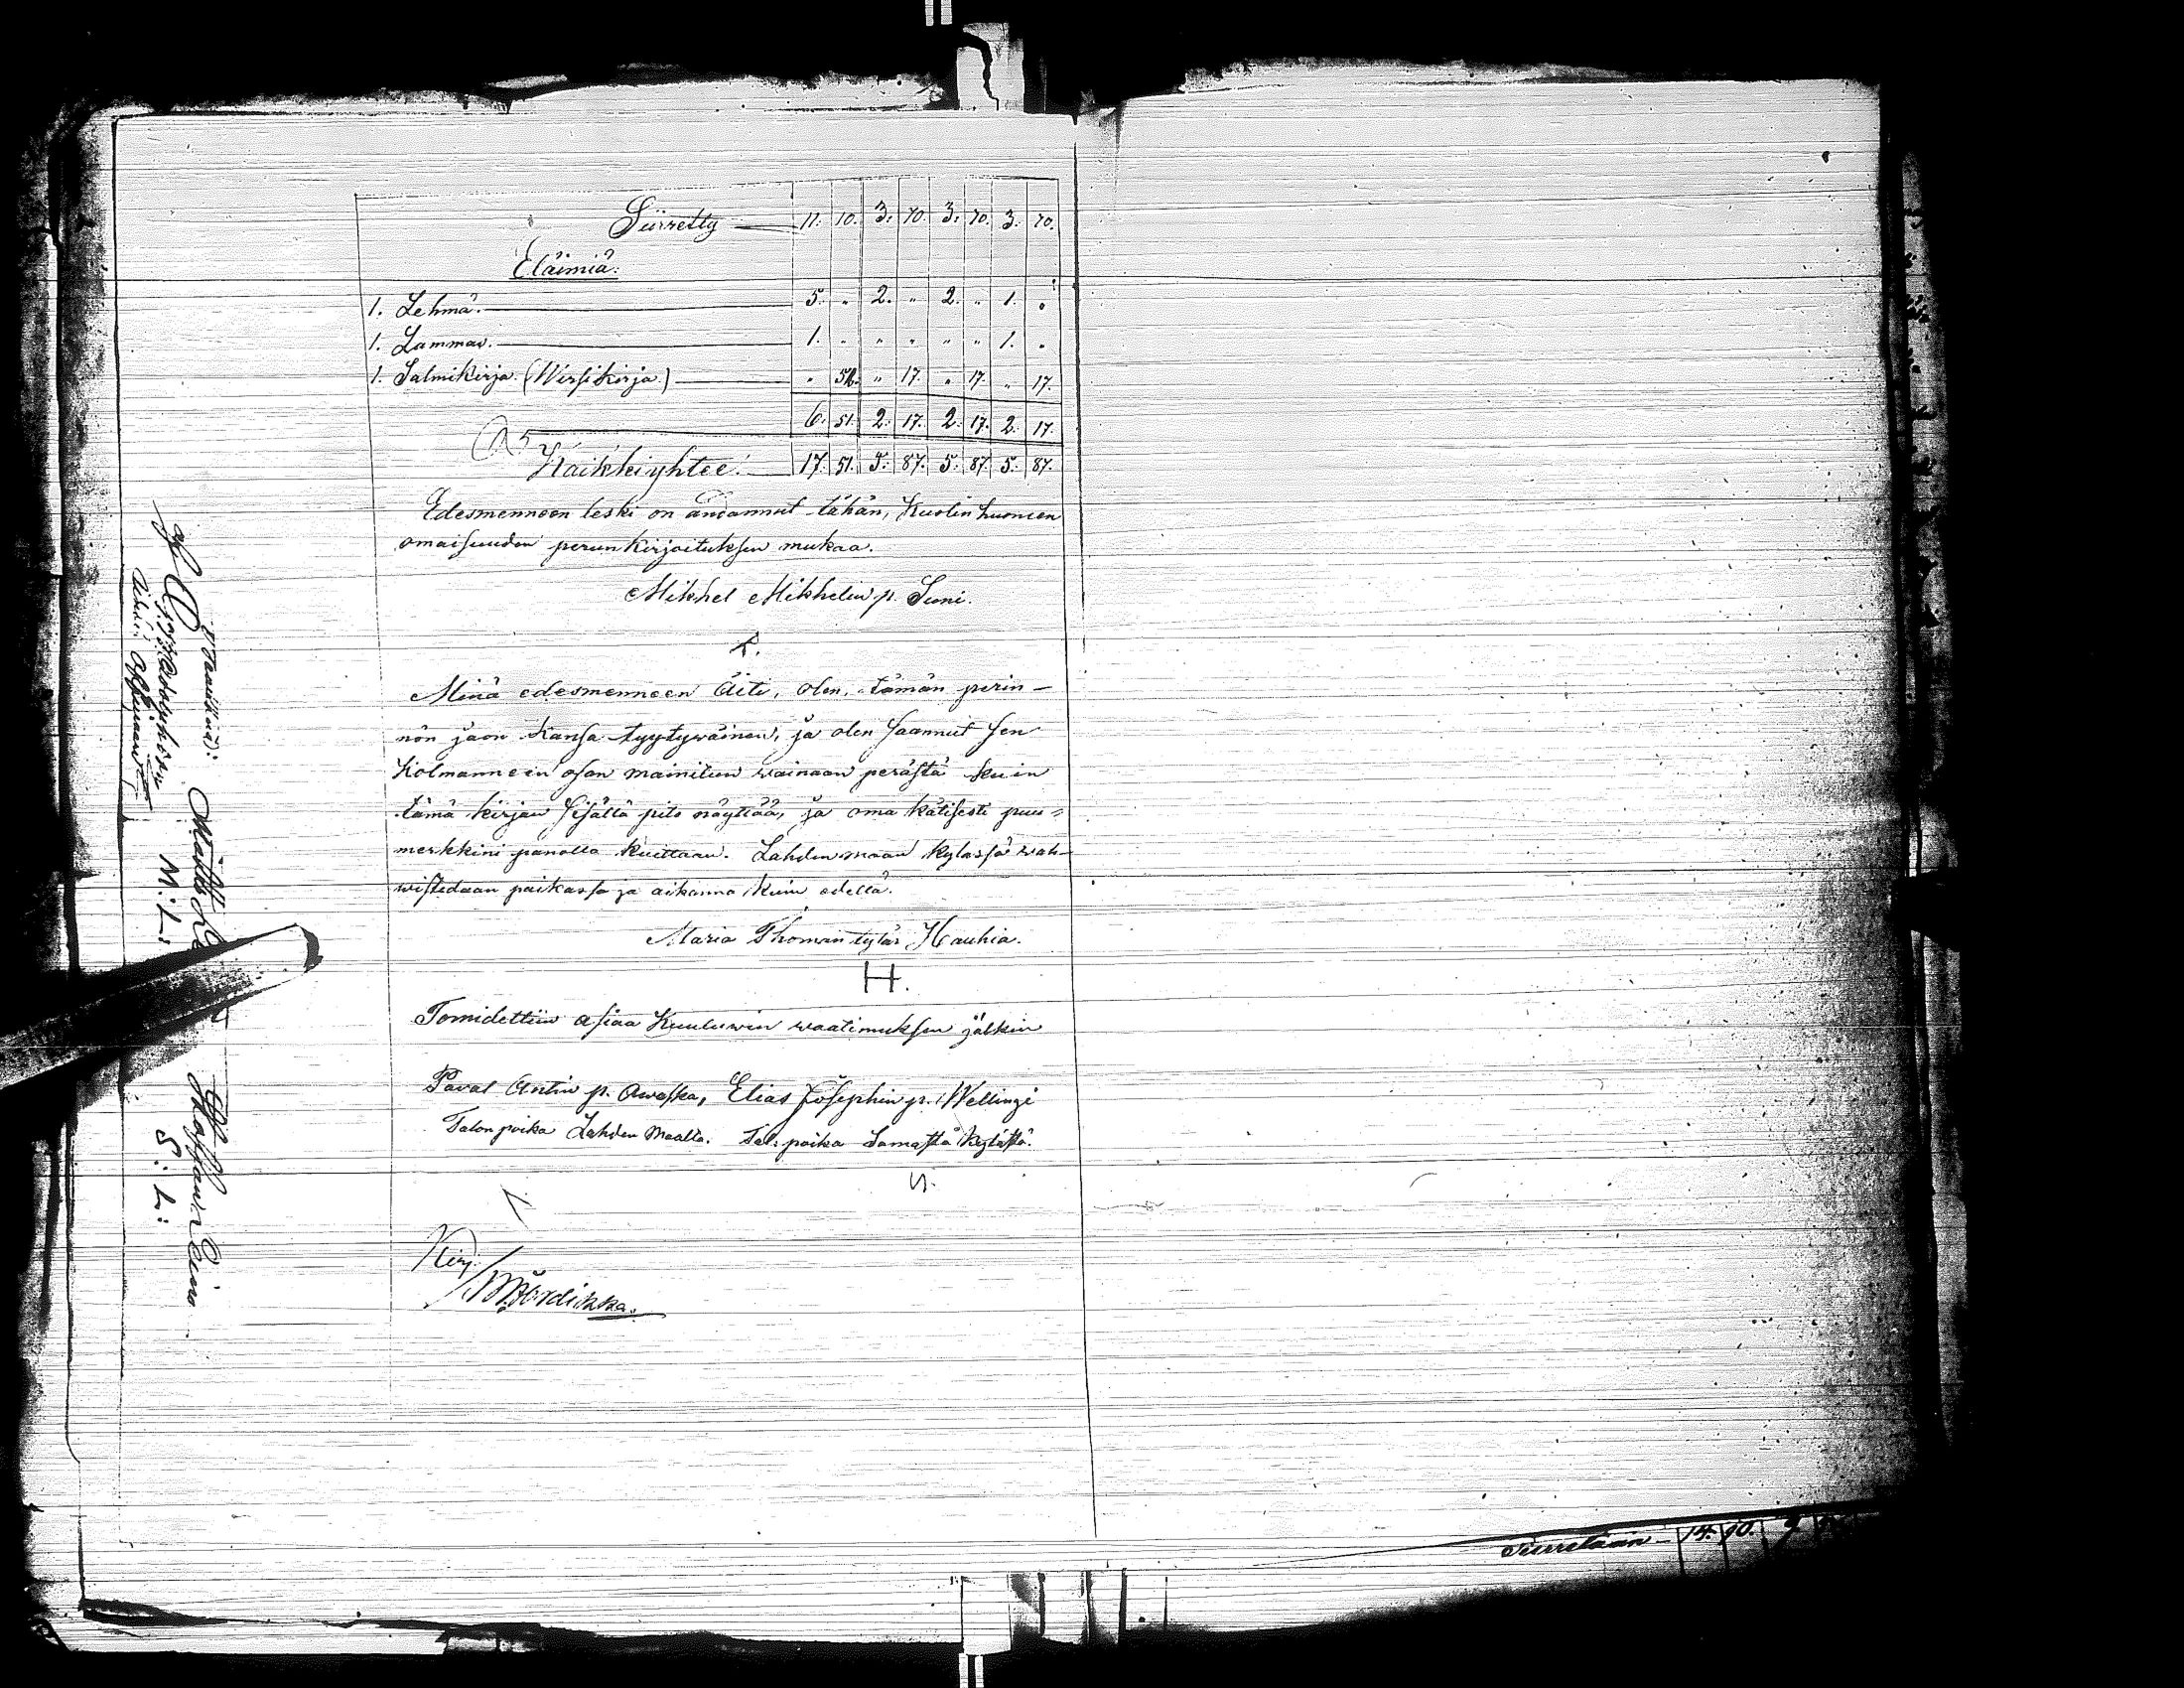 Siirretty — 11. 10. 3. 70. 3. 70. 3. 70.
Eläimiä:
1. Lehmä. — 5. „ 2. „ 2. „ 1. „
1. Lammas. — 1. „ „ „ „ „ 1. „
1. Salmikirja. (Wirsikirja.) — „ 51. „ 17. „ 17. „ 17.
6. 51. 2. 17. 2. 17. 2. 17.
Kaikkiyhtee: — 17. 51. 5. 87. 5. 87. 5. 87.
Edesmenneen leski on andannut tähän, Kuolin huoneen
omaisuuden perunkirjoituksen mukaa.
Mikhel Mikhelin p. Suni.
Minä edesmenneen Äiti, olen, tämän perin-
nön jaon kansa tyytywäinen, ja olen saannut sen
Kolmannein osan mainitun wainaan perästä kuin
tämä kirjan sisällä pito näyttää, ja oma kätisesti puu-
merkkini panolla kuittaan. Lahdenmaan kylässä wah-
wistedaan paikassa ja aikanna kuin edellä.
Maria Thoman tytär Hauhia.
H.
Tomidettiin asiaa Kuuluwin waatimuksen jälkin
Paval Antin p. Awaska, Elias Josephin p. Wellingi
Talon poika Lahden Maalta. Tal: poika Samasta Kylästä.
Kirj.
Siirretään — 14. 90. 9.
Waadittu):
M: L:
S: L: